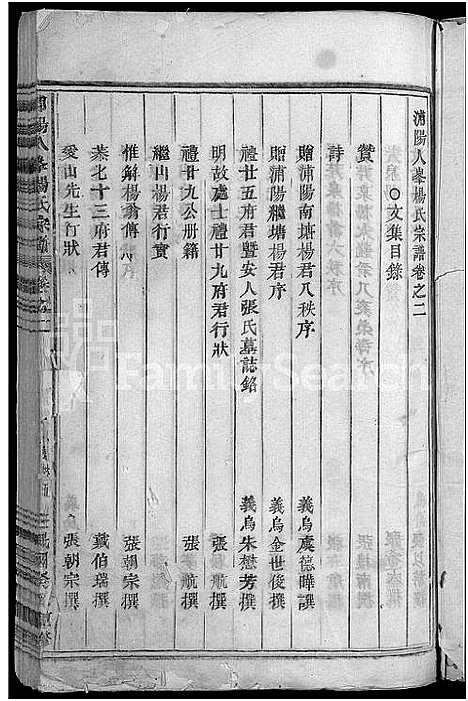 浦陽人峯楊氏宗譜卷之二
文集目錄
贊
詩
贈浦陽南塘楊君八秩序 義烏虞德曄譔
贈浦陽繼塘楊君序 義烏金世俊撰
禮廿五府君暨安人張氏墓誌銘 義烏朱懋芳撰
明故處士禮廿九府君行狀 張 航撰
禮廿九公册籍 張 航撰
繼山楊君行實
惟斛楊翁傳 張朝宗撰
恭七十三府君傳 戴伯瑞撰
愛山先生行狀 義烏張朝宗撰
FamilySearch